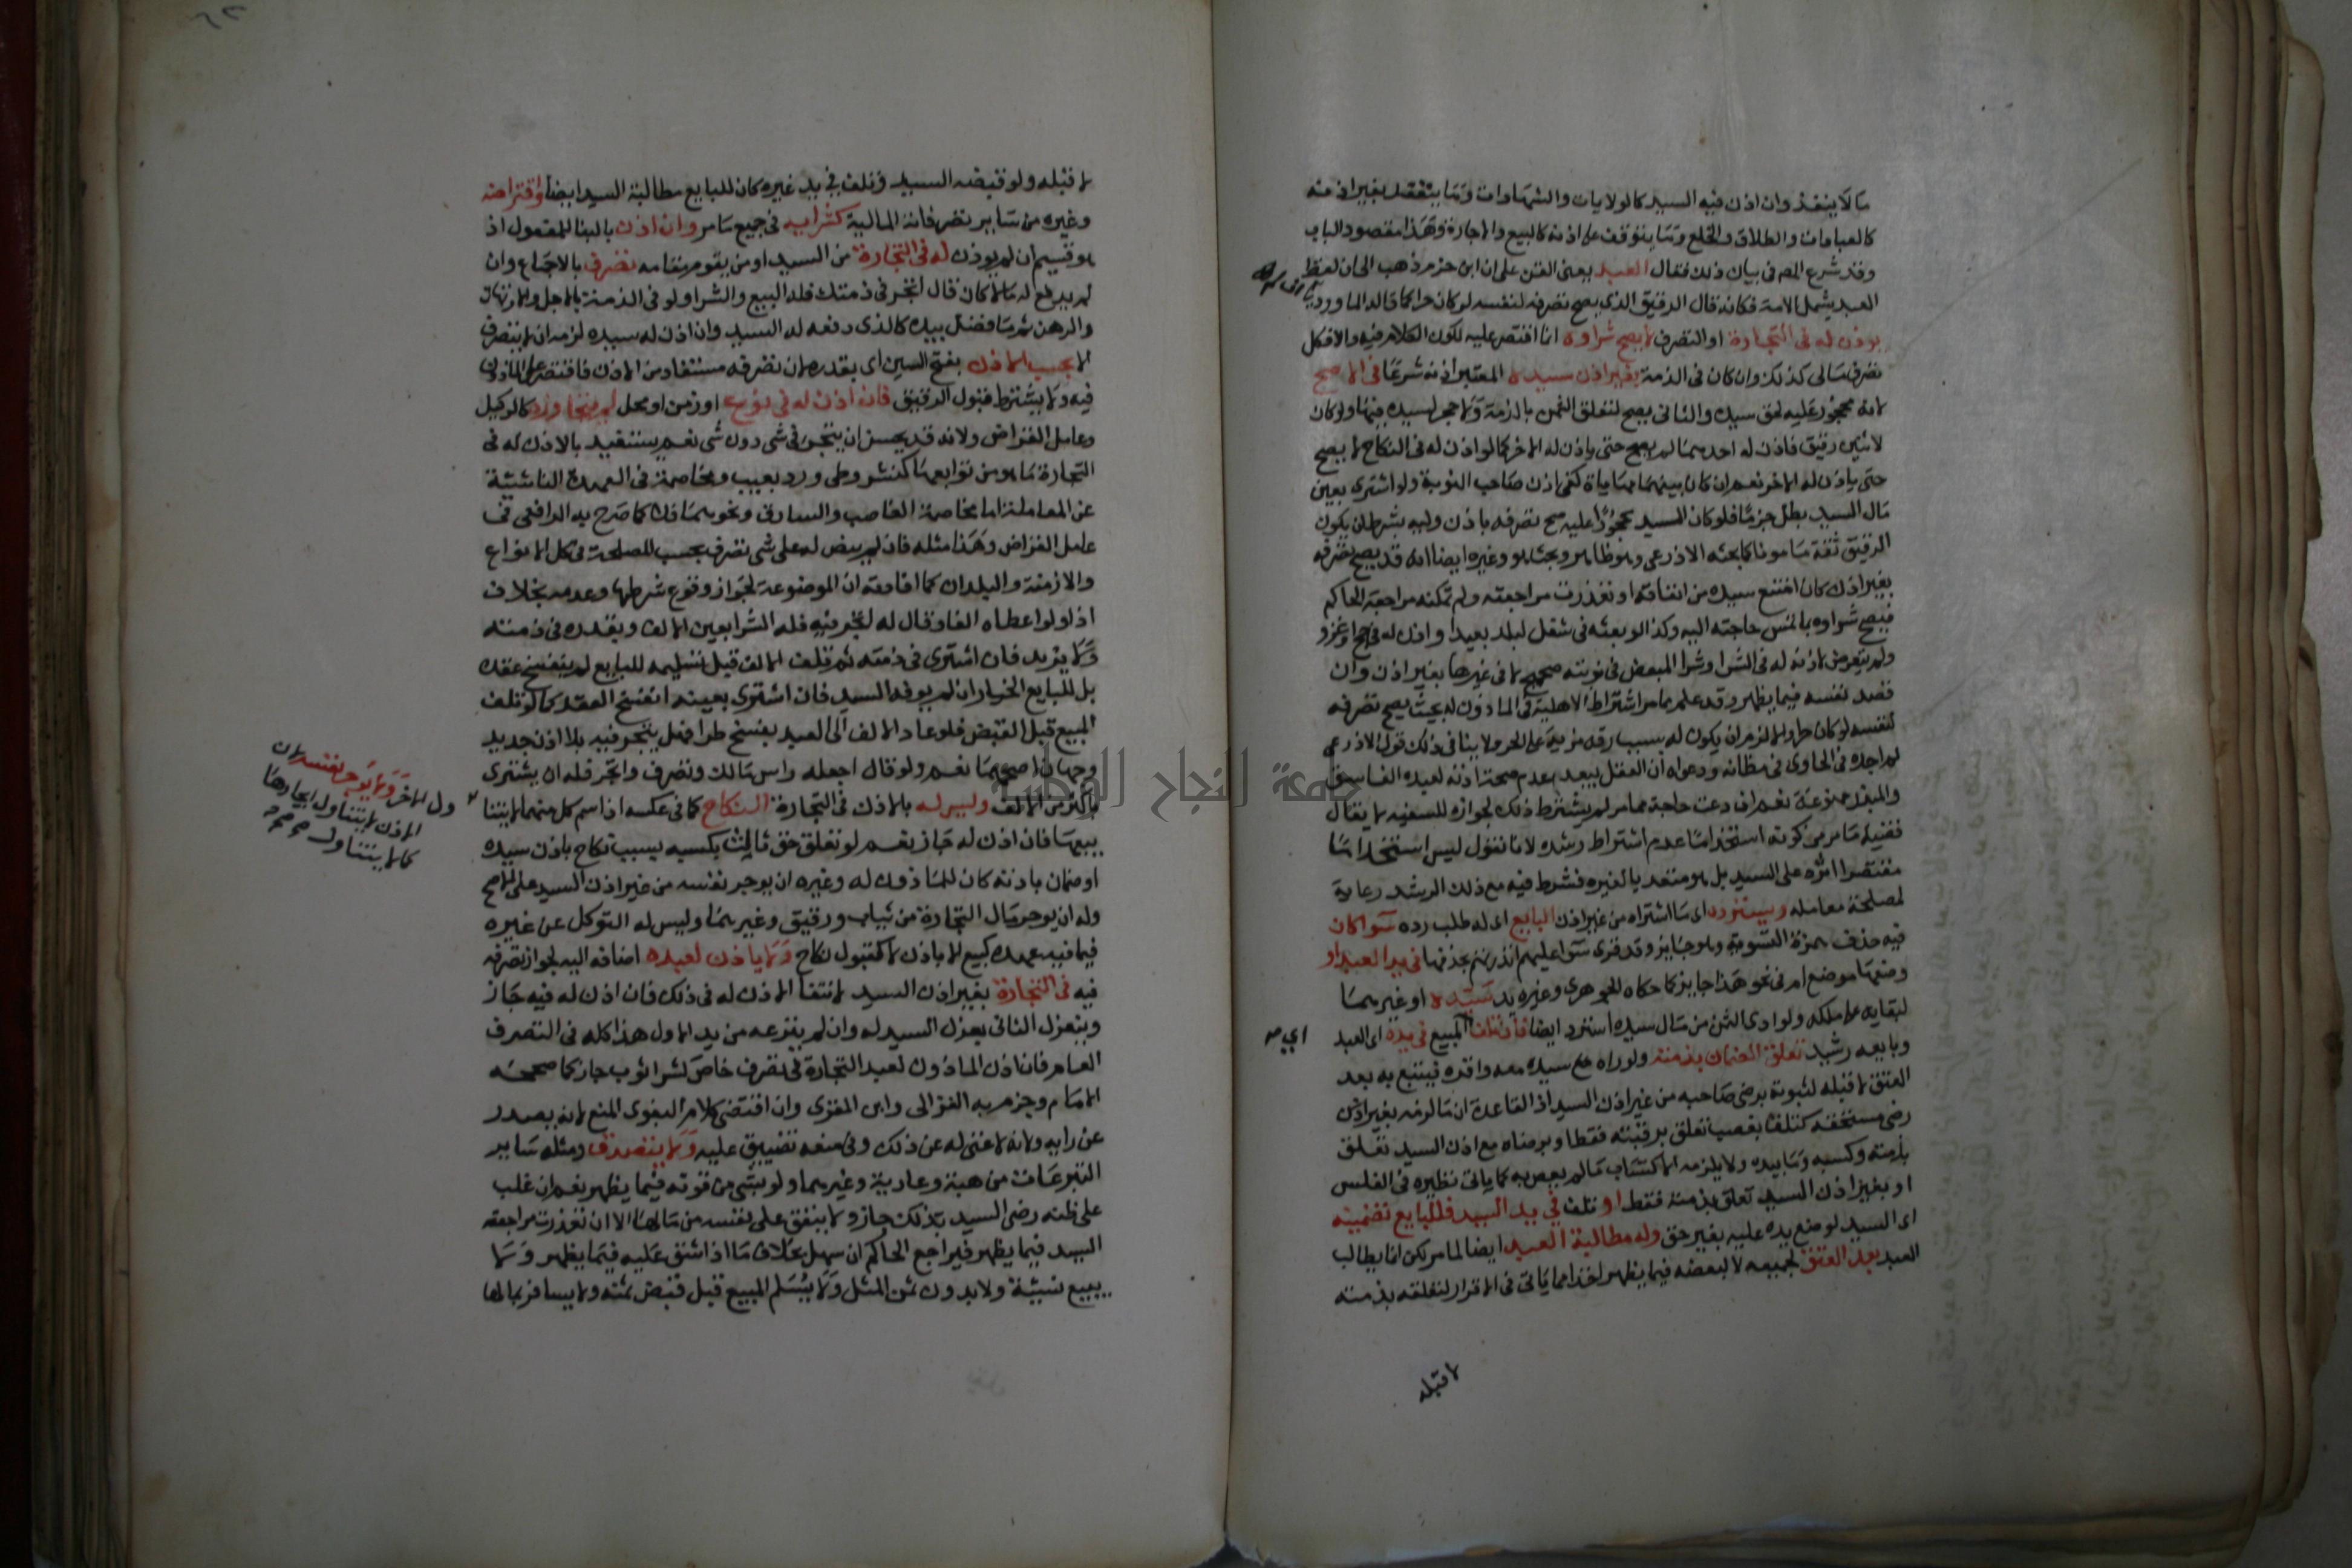 ما لا ينفذ وان اذن فيه السيد كالولايات والشهادات وما ينفذ بغير اذنه
كالعبادات والطلاق والخلع وما يتوقف على اذنه كالبيع والاجارة وهذا مقصود الباب
وقد شرع المص في بيان ذلك فقال العبد يعني القن على ان ابن حزم ذهب الى ان لفظ
العبد يشمل الامة فكانه قال الرقيق الذي يصح تصرفه لنفسه لو كان حرا كما قاله الماوردي
ان لم
يوذن له في التجارة او التصرف لا يصح شراوه انما اقتصر عليه لكون الكلام فيه والا فكل
تصرف مالي كذلك وان كان في الذمة بغير اذن سيده المعتبر اذنه شرعا في الاصح
لانه محجور عليه لحق سيده والثاني يصح لتعلق الثمن بالذمة ولا حجر لسيده فيها ولو كان
لاثنين رقيق فاذن له احدهما لم يصح حتى ياذن له الاخر كما لو اذن له في النكاح لا يصح
حتى ياذن له الاخر نعم ان كان بينهما مهاياة كفى اذن صاحب النوبة ولو اشترى بعين
مال السيد بطل جزما فلو كان السيد محجورا عليه صح تصرفه باذن وليه بشرط ان يكون
الرقيق ثقة مامونا كما بحثه الاذرعي وهو ظاهر وبحث هو وغيره ايضا انه قد يصح تصرفه
بغير اذن كان امتنع سيده من انفاقه او تعذرت مراجعته ولم تمكنه مراجعة الحاكم
فيصح شراوه بالمس حاجته اليه وكذا لو بعثه في شغل لبلد بعيد او اذن له في حج او غزو
ولم يتعرض لاذنه له في الشرا وشرا المبعض في نوبته صحيح لا في غيرها بغير اذن وان
قصد نفسه فيما يظهر وقد علم مما مر اشتراط الاهلية في الماذون له بحيث يصح تصرفه
لنفسه لو كان حرا والا لزم ان يكون له بسبب رقه مزية على الحر ولا ينافي ذلك قول الاذرعي
لم اجده في الحاوي في مظانه ودعواه ان العقل يبعد عدم صحة اذنه لعبده الفاسق
والمبذر ممنوعة نعم ان دعت حاجة مما مر لم يشترط ذلك لجوازه للسفيه لا يقال
قضية ما مر من كونه استخداما عدم اشتراط رشده لانا نقول ليس استخداما
مقتصرا اثره على السيد بل هو متعد بالغيره فشرط فيه مع ذلك الرشد رعاية
لمصلحة معامله ويسترده اي ما اشتراه من غير اذن البايع اي له طلب رده سوا كان
فيه حذف همزة التسوية وهو جايز وقد قرئ سوا عليهم انذرتهم بحذفها في يد العبد او
وضعها موضع ام في نحو هذا جايز كما حكاه الجوهري وغيره يد سيده او غيرهما
لبقايه على ملكه ولو ادى الثمن من مال سيده استرد ايضا فان تلف المبيع في يده اي العبد
اي
وبايعه رشيد تعلق الضمان بذمته ولو راه مع سيده معه واقره فيتبع به بعد
العتق لا قبله لثبوته برضى صاحبه من غير اذن السيد اذ القاعدة ان ما لزمه بغير اذن
رضى مستحقه كتلف بغصب تعلق برقبته فقط او برضاه مع اذن السيد تعلق
بذمته وكسبه وما بيده ولا يلزمه الاكتساب ما لم يعص به كما ياتي نظيره في الفلس
او بغير اذن السيد تعلق بذمته فقط او تلف في يد السيد فللبايع تضمينه
اي السيد لوضع يده عليه بغير حق وله مطالبة العبد ايضا لما مر لكن انما يطالب
العبد بعد العتق لجميعه لا لبعضه فيما يظهر اخذا مما ياتي في الاقرار لتعلقه بذمته
لا قبله
لا قبله ولو قبضه السيد وتلف في يد غيره كان للبايع مطالبة السيد ايضا واقتراضه
وغيره من ساير تصرفاته المالية كشرايه في جميع ما مر وان اذن بالبنا للمفعول اذ
هو قسيم ان لم يوذن له في التجارة من السيد او من يقوم مقامه تصرف بالاجماع وان
لم يدفع له مالا كان قال اتجر في ذمتك فله البيع والشرا ولو في الذمة بالاجل والارتهان
والرهن ثم ما فضل بيده كالذي دفعه له السيد وان اذن له سيده لزمه ان لا يتصرف
الا بحسب الاذن بفتح السين اي بقدره لان تصرفه مستفاد من الاذن فاقتصر على الماذون
فيه ولا يشترط قبول الرقيق فان اذن له في نوع او زمن او محل لم يتجاوزه كالوكيل
وعامل القراض ولانه قد يحسن ان يتجر في شي دون شي نعم يستفيد بالاذن له في
التجارة ما هو من توابعها كنشر وطي ورد بعيب ومخاصمة في العهدة الناشية
عن المعاملة اما مخاصمة الغاصب والسارق ونحوهما فلا كما صرح به الرافعي في
عامل القراض وهذا مثله فان لم ينص له على شي تصرف بحسب المصلحة في كل الانواع
والازمنة والبلدان كما افادته ان الموضوعة لجواز وقوع شرطها وعدمه بخلاف
اذا ولو اعطاه الفا وقال له اتجر فيه فله الشرا بعين الالف وبقدره في ذمته
ولا يزيد فان اشترى في ذمته ثم تلف الالف قبل تسليمه للبايع لم ينفسخ عقده
بل للبايع الخيار ان لم يوفه السيد فان اشترى بعينه انفسخ العقد كما لو تلف
المبيع قبل القبض فلو عاد الالف الى العبد بفسخ طرا فهل يتجر فيه بلا اذن جديد
وجهان اصحهما نعم ولو قال اجعله راس مالك وتصرف واتجر فله ان يشتري
باكثر من الالف وليس له بالاذن في التجارة النكاح كما في عكسه اذ اسم كل منهما لا يتنا
ول الاخر ولا يوجر نفسه لان
الاذن لا يتناول ايجارها
كما لا يتناول
بيعها فان اذن له جاز نعم لو تعلق حق ثالث بكسبه بسبب نكاح باذن سيده
او ضمان باذنه كان للماذون له وغيره ان يوجر نفسه من غير اذن السيد على الاصح
وله ان يوجر مال التجارة من ثياب ورقيق وغيرهما وليس له التوكل عن غيره
فيما فيه عهدة كبيع الا باذن لا كقبول نكاح ولا ياذن لعبده اضافه اليه لجواز تصرفه
فيه في التجارة بغير اذن السيد لانتفا الاذن له في ذلك فان اذن له فيه جاز
وينعزل الثاني بعزل السيد له وان لم ينزعه من يد الاول هذا كله في التصرف
العام فان اذن الماذون لعبد التجارة في تصرف خاص كشرا ثوب جاز كما صححه
الامام وجزم به الغزالي وابن المقري وان اقتضى كلام البغوي المنع لانه يصدر
عن رايه ولانه لا غنى له عن ذلك وفي منعه تضييق عليه ولا يتصدق ومثله ساير
التبرعات من هبة وعارية وغيرهما ولو بشي من قوته فيما يظهر نعم ان غلب
على ظنه رضى السيد بذلك جاز ولا ينفق على نفسه من مالها الا ان تعذرت مراجعة
السيد فيما يظهر فيراجع الحاكم ان سهل بخلاف ما اذا شق عليه فيما يظهر ولا
يبيع نسيئة ولا بدون ثمن المثل ولا يسلم المبيع قبل قبض ثمنه ولا يسافر بمالها
جامعة النجاح الوطنية